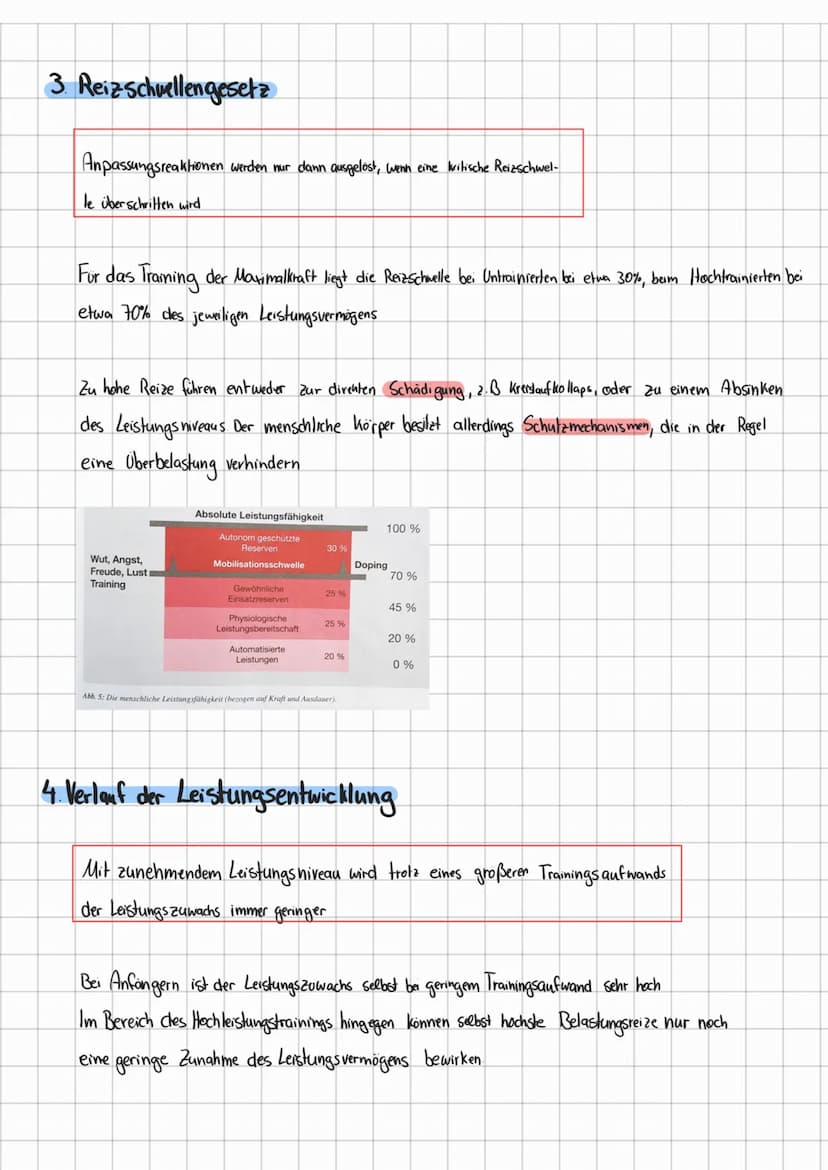 3. Reizschwellengesetz
Anpassungsreaktionen werden nur dann ausgelöst, wenn eine kritische Reizschwel-
le überschritten wird
Für das Training der Maximalkraft liegt die Reizschwelle bei Untrainierten bei etwa 30%, beim Hochtrainierten bei
etwa 70% des jeweiligen Leistungsvermögens
Zu hohe Reize führen entweder zur direkten Schädigung, z.B Kreislaufkollaps, oder zu einem Absinken
des Leistungsniveaus Der menschliche Körper besitzt allerdings Schutzmechanismen, die in der Regel
eine Überbelastung verhindern
Absolute Leistungsfähigkeit
100 %
Autonom geschützte
Reserven
30 %
Wut, Angst,
Freude, Lust
Training
Mobilisationsschwelle
Doping
70 %
Gewöhnliche
Einsatzreserven
25 %
45 %
Physiologische
Leistungsbereitschaft
25 %
20 %
Automatisierte
Leistungen
20 %
0 %
Abb. 5: Die menschliche Leistungsfähigkeit (bezogen auf Kraft und Ausdauer).
4. Verlauf der Leistungsentwicklung
Mit zunehmendem Leistungsniveau wird trotz eines größeren Trainingsaufwands
der Leistungszuwachs immer geringer
Bei Anfängern ist der Leistungszuwachs selbst bei geringem Trainingsaufwand sehr hoch
Im Bereich des Hochleistungstrainings hingegen können selbst höchste Belastungsreize nur noch
eine geringe Zunahme des Leistungsvermögens bewirken